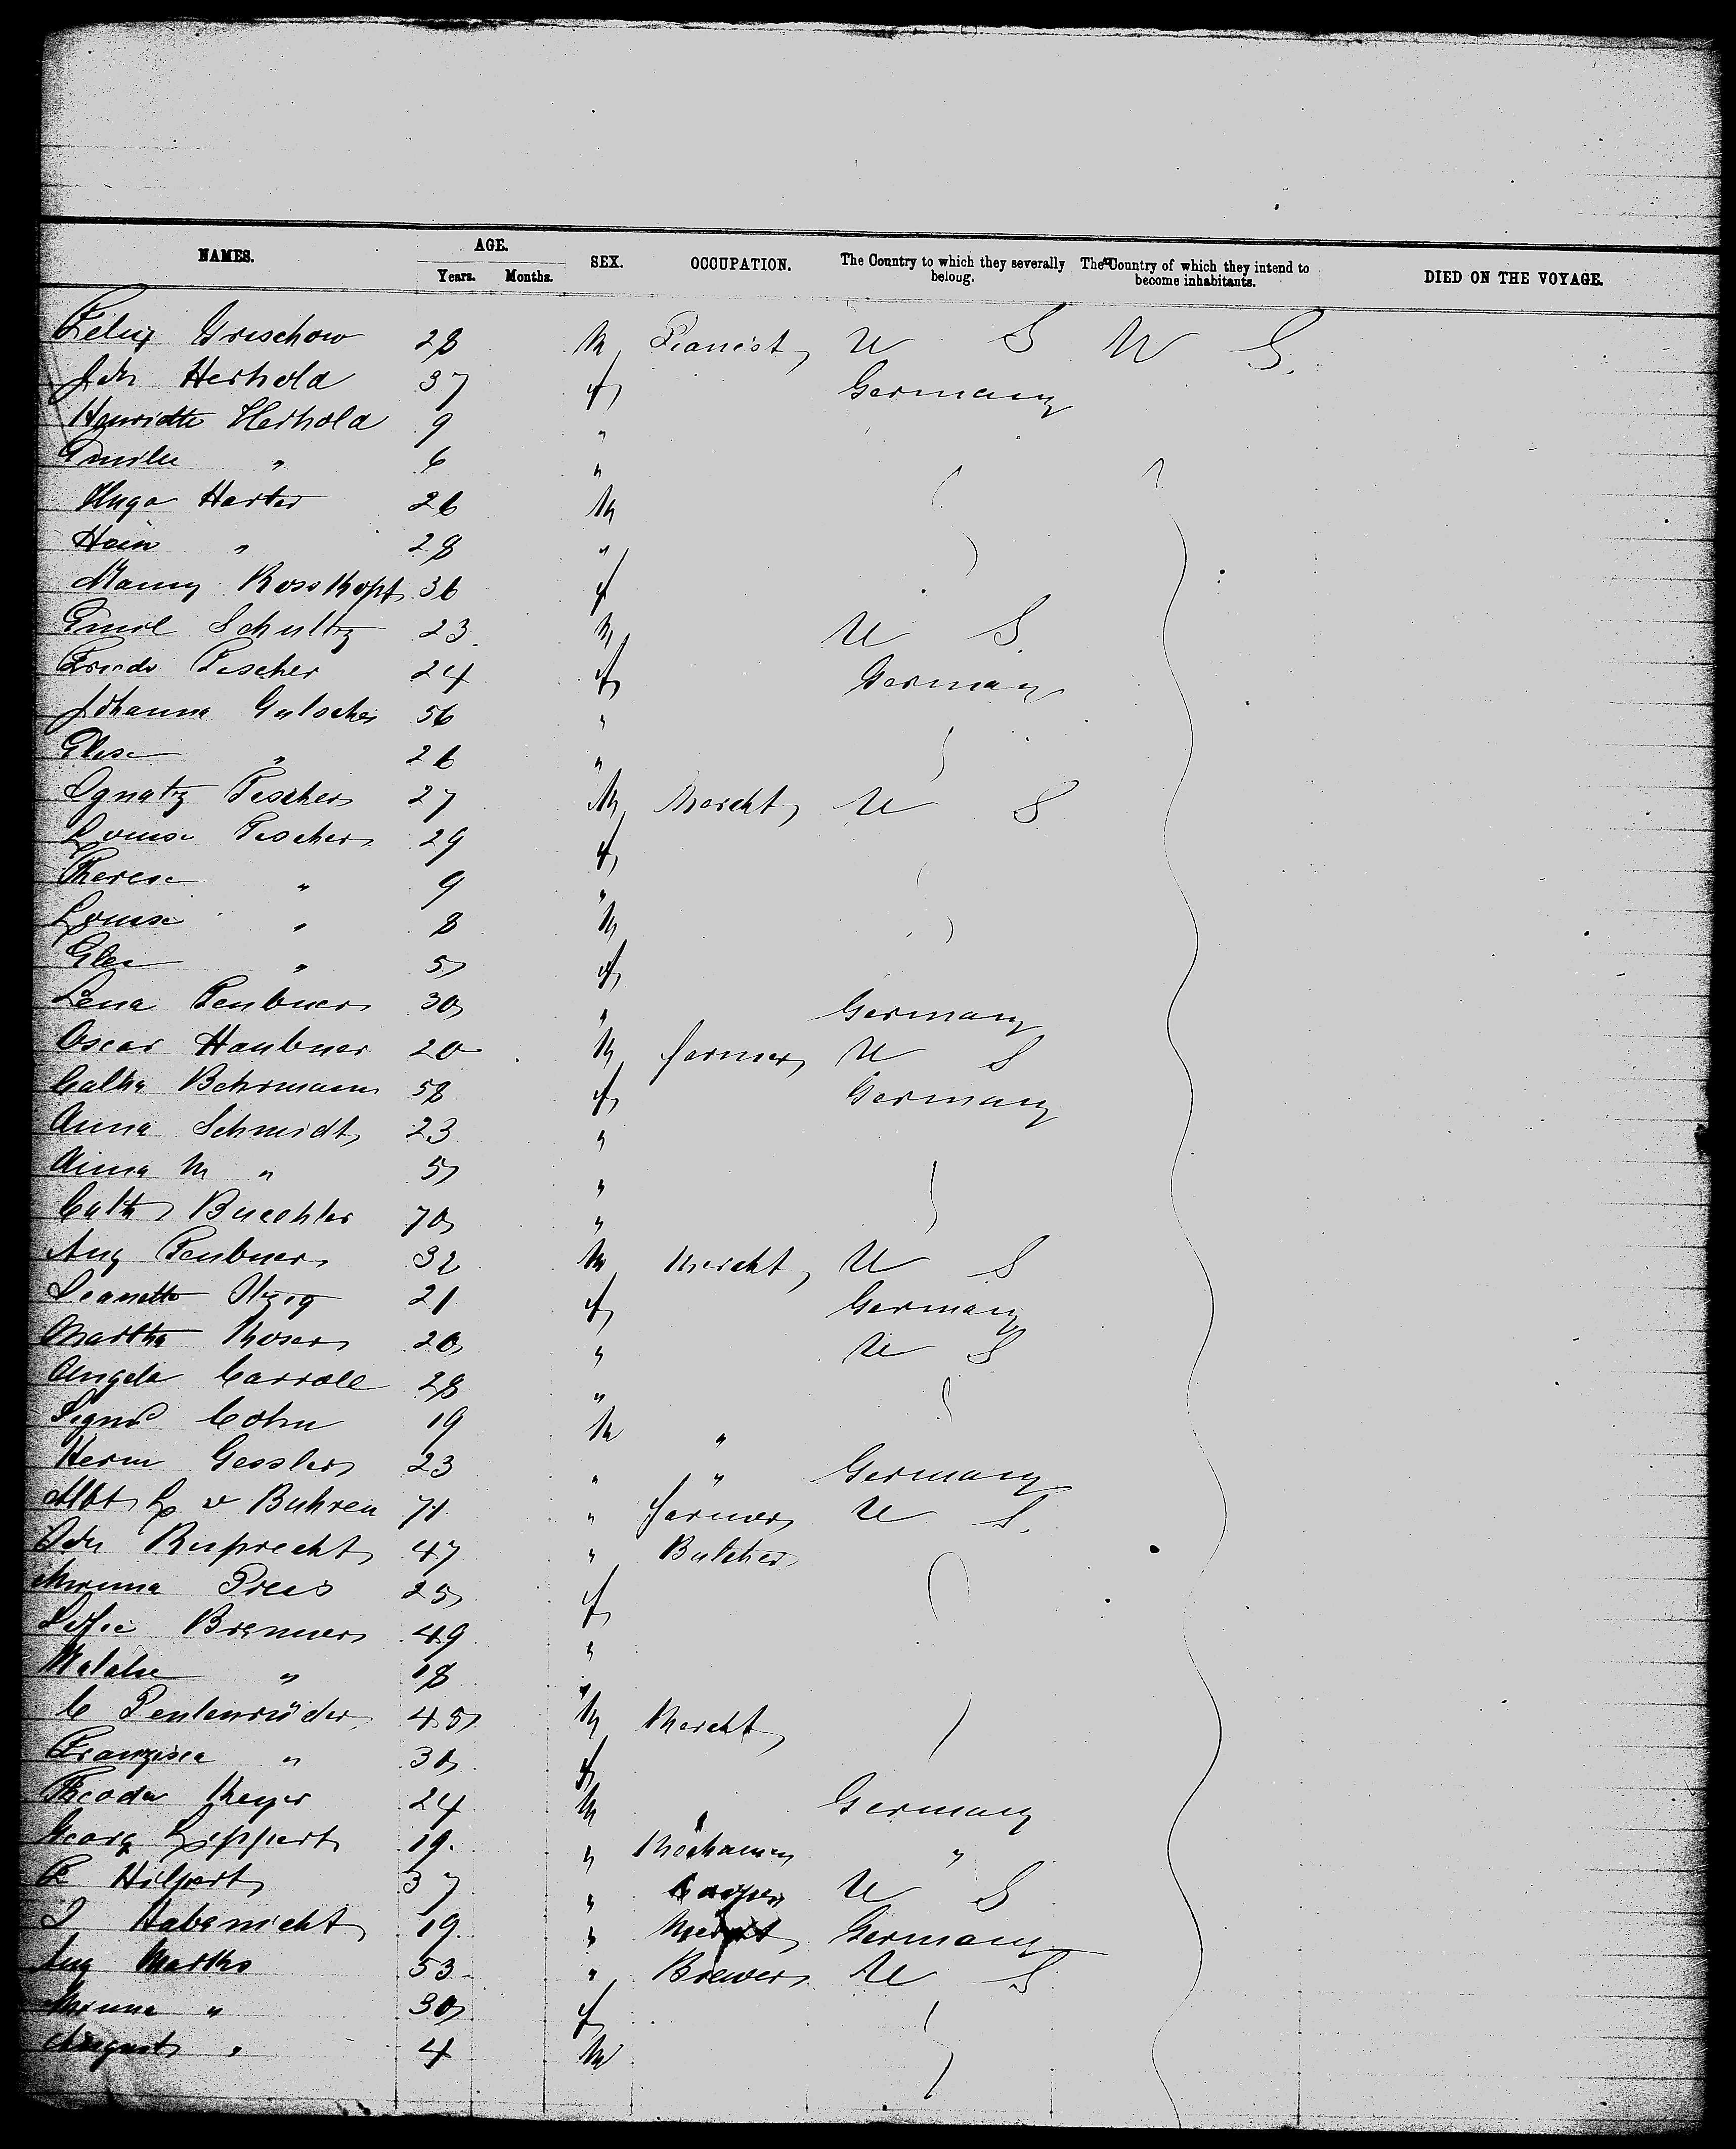 NAMES. AGE. Years. Months. SEX. OCCUPATION. The Country to which they severally belong. The Country of which they intend to become inhabitants. DIED ON THE VOYAGE.
Felix Grischow 28 M Pianist U S U S.
Joh Herhold 37 f Germany
Henriette Herhold 9 "
Emilie " 6 "
Hugo Harter 26 M
Hein " 28 "
Manny Rosskopf 36 f
Emil Schultz 23 M U S.
Friedr Fischer 24 f Germany
Johanna Gulscher 56 "
Elise " 26 "
Ignatz Fischer 27 M Mercht U S
Louise Fischer 29 f
Therese " 9 "
Louise " 8 M
" 5 f
Lena Teubner 30 " Germany
Oscar Haubner 20 M farmer U S
Cathr Behrmann 58 f Germany
Anna Schmidt 23 "
Anna M " 5 "
Cath Buechler 70 "
Aug Teubner 32 M Mercht U S
Jeanette Itzig 21 f Germany
Martha Moser 20 " U S
Angela Carroll 28 "
Sigmd Cohn 19 M "
Herm Gessler 23 " " Germany
Albt L v Buhren 71 " farmer U S.
Ruprecht 47 " Butcher
Minna Preis 25 f
Sofie Bremer 49 "
" 18 "
C Pentenrüder 45 M Mercht
Franzisca " 30 f
Theodor Meyer 24 M " Germany
Georg Lippert 19. " "
F Hilpert 37 " U S
J Habenicht 19. " Mercht Germany
Aug Marths 53 " Brewer U S
Minna " 30 f
August " 4 M